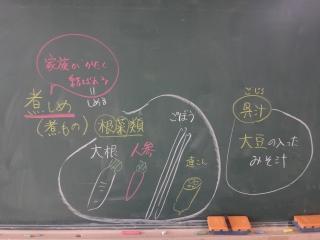 家族が かたく
結ばれる
しめる
煮しめ
(煮もの)
根菜類
大根
人参
ごぼう
蓮こん
ごじる
呉汁
大豆の入った
みそ汁